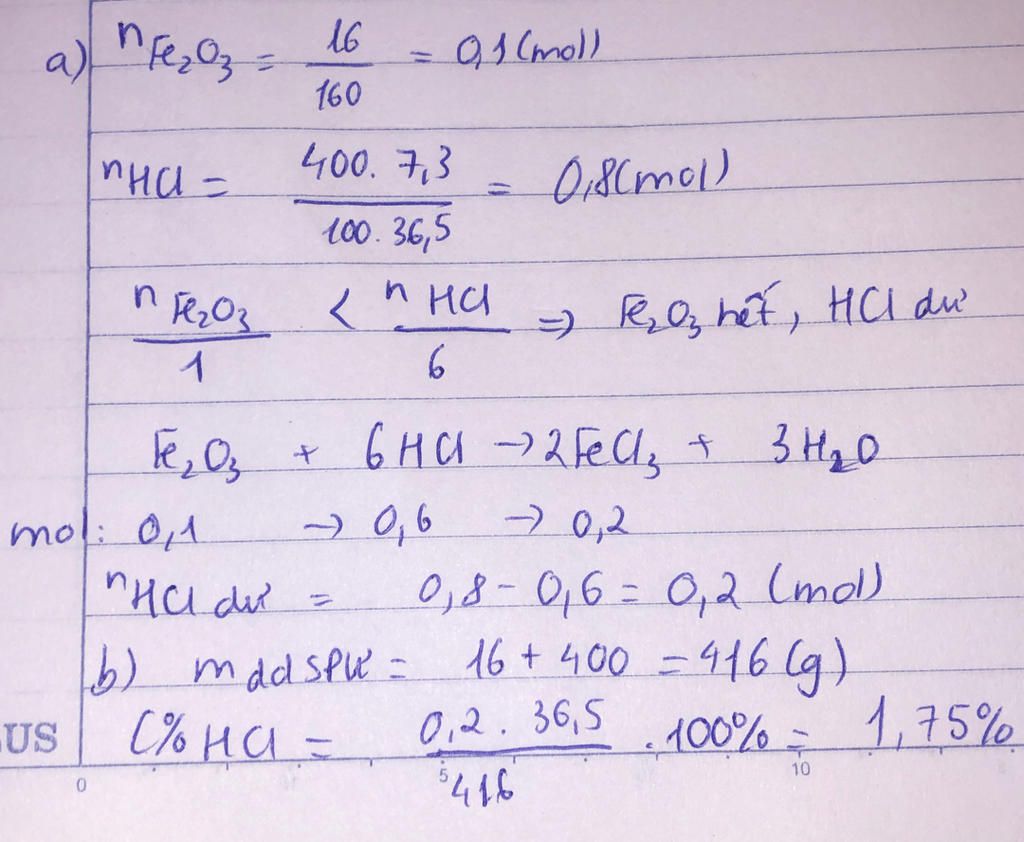 a) nFe₂O₃ = 16/160 = 0,1 (mol)
nHCl = 400. 7,3/100. 36,5 = 0,8 (mol)
nFe₂O₃/1 < nHCl/6 ⇒ Fe₂O₃ hết, HCl dư
Fe₂O₃ + 6HCl → 2FeCl₃ + 3H₂O
mol: 0,1 → 0,6 → 0,2
nHCl dư = 0,8 - 0,6 = 0,2 (mol)
b) mddspư = 16 + 400 = 416 (g)
C% HCl = 0,2. 36,5/416 .100% = 1,75%
US
0 5 10